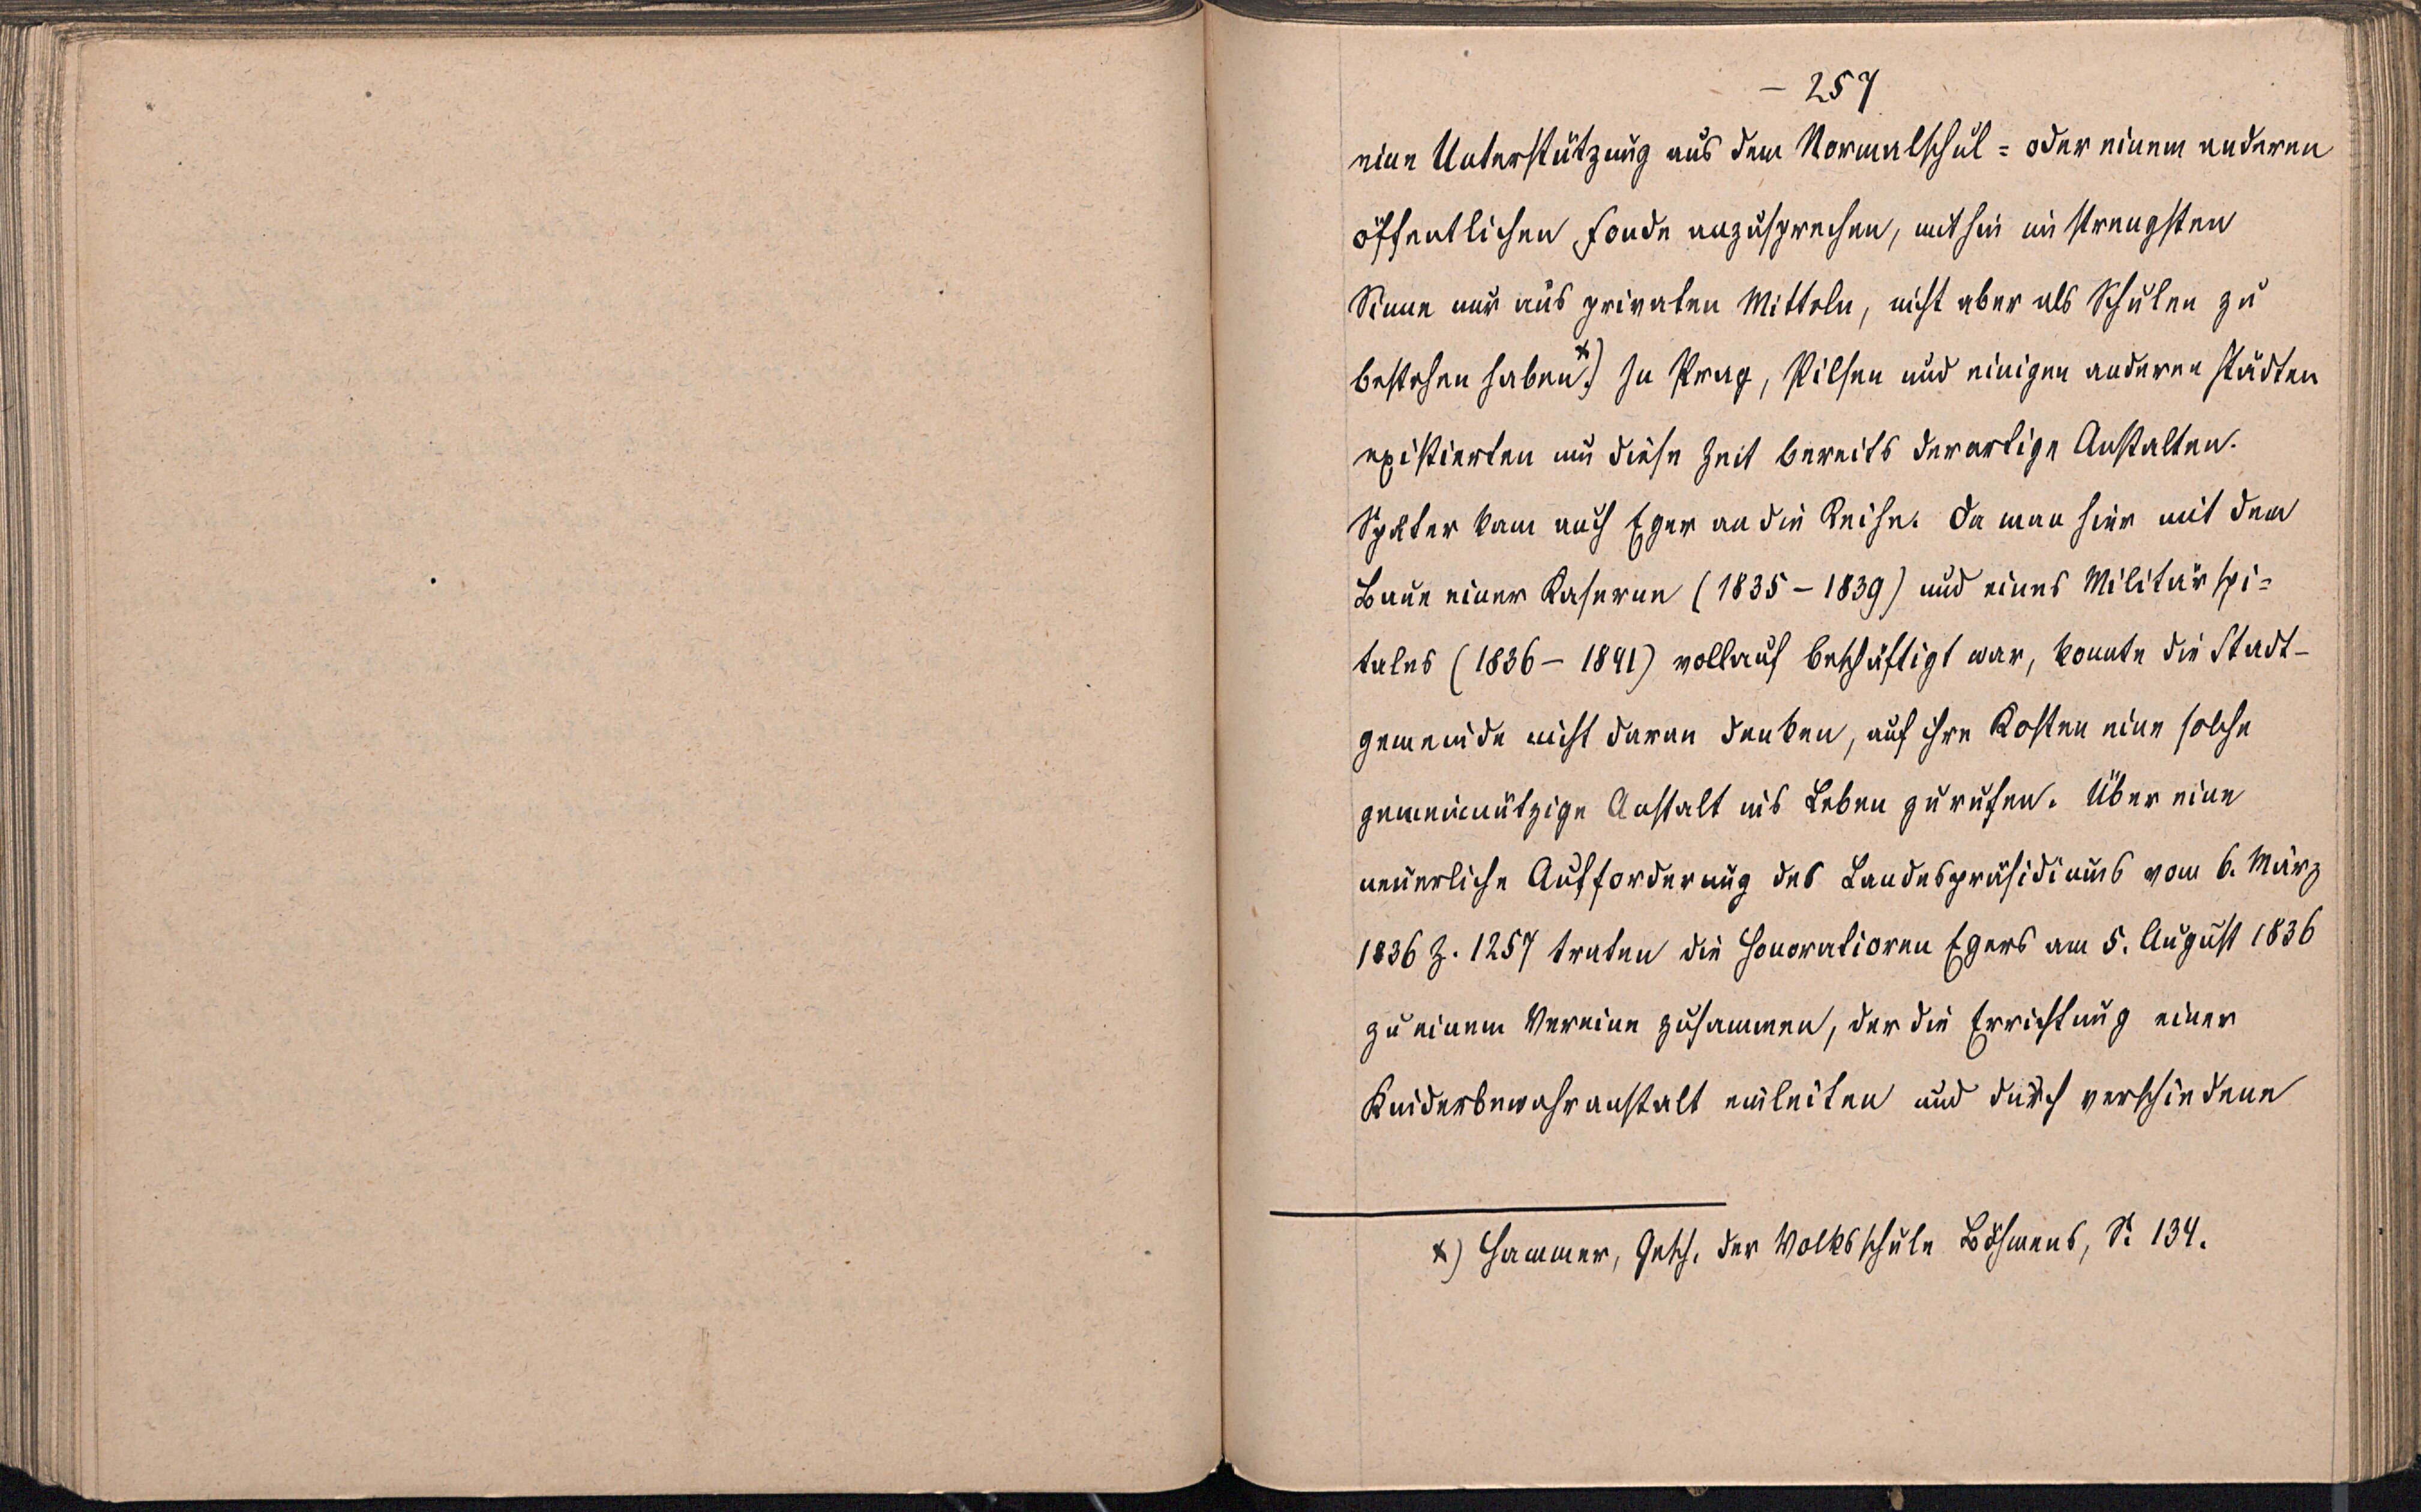 — 257
eine Unterstützung aus dem Normalschul = oder einem anderen
öffentlichen Fonde anzusprechen, mithin im strengsten
Sinne nur aus privaten Mitteln, nicht aber als Schulen zu
bestehen haben.*) In Prag, Pilsen und einigen anderen Städten
existierten um diese Zeit bereits derartige Anstalten.
Später kam auch Eger an die Reihe. Da man hier mit dem
Baue einer Kaserne (1835 – 1839) und eines Militärspi=
tales (1836 – 1841) vollauf beschäftigt war, konnte die Stadt-
gemeinde nicht daran denken, auf ihre Kosten eine solche
gemeinnützige Anstalt ins Leben zu rufen. Über eine
neuerliche Aufforderung des Landespräsidiums vom 6. März
1836 Z. 1257 traten die Honoratioren Egers am 5. August 1836
zu einem Vereine zusammen, der die Errichtung einer
Kinderbewahranstalt einleiten und durch verschiedene
*) Hammer, Gesch. der Volksschule Böhmens, S. 134.